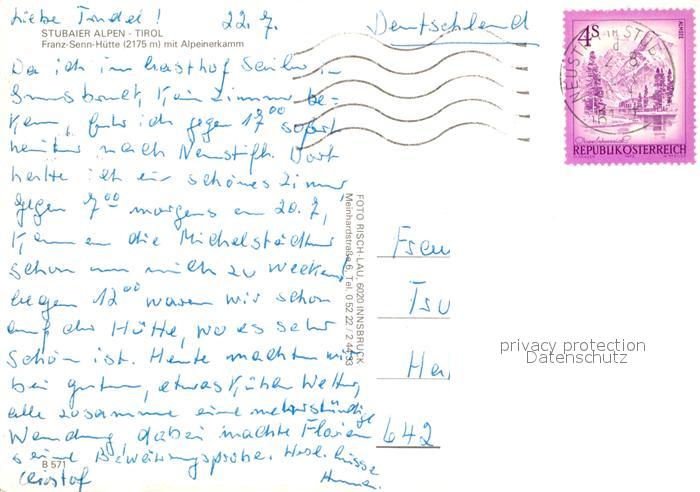 Liebe Trudel! 22.7.
Deutschland
STUBAIER ALPEN - TIROL
Franz-Senn-Hütte (2175 m) mit Alpeinerkamm
Da ich im Gasthof in
Innsbruck kein Zimmer be-
kam, fuhr ich gegen 17⁰⁰ sofort
weiter nach Neustift. Dort
hatte ich ein schönes Zimmer,
gegen 7⁰⁰ morgens am 20.7,
kamen die Michelstädter
schon um mich zu wecken
Gegen 12⁰⁰ waren wir schon
auf der Hütte, wo es sehr
schön ist. Heute machten wir
bei gutem, etwas kühlem Wetter,
alle zusammen eine mehrstündige
Wanderung, dabei machte Florian
seine Bewährungsprobe. Herzl. Grüsse
B 571
Christof
FOTO RISCH-LAU, 6020 INNSBRUCK
Meinhardstraße 6, Tel. 0 52 22 / 2 44 33
Frau
Tru
Hei
642
4 S
REPUBLIK ÖSTERREICH
privacy protection
Datenschutz